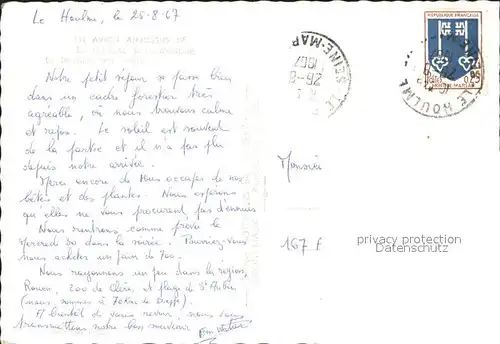 Le Houlme, le 25-8-67
Notre petit séjour se passe bien
dans un cadre forestier très
agréable, où nous trouvons calme
et repos. Le soleil est souvent
de la partie et il n'a pas plu
depuis notre arrivée.
Merci encore de vous occuper de nos
bêtes et des plantes. Nous espérons
qu'elles ne vous procurent pas d'ennuis
Nous rentrons, comme prévu le
Mercredi 30 dans la soirée. Pourriez-vous
nous acheter un pain de 700.
Nous rayonnons un peu dans la région,
Rouen, zoo de Clère, et plage de St Aubin
(nous sommes à 70km de Dieppe).
A bientôt de vous revoir, nous vous
transmettons notre bon souvenir
Monsieur
167 F
REPUBLIQUE FRANCAISE
MONT DE MARSAN
LE HOULME
SEINE-MAR
26-8
1967
privacy protection
Datenschutz